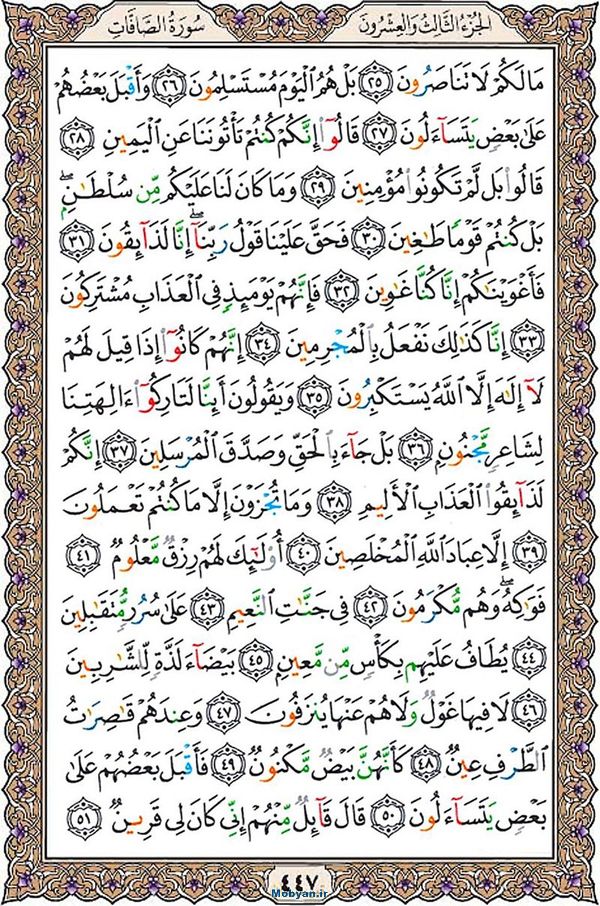 الجُزءُ الثَّالِثُ وَالعِشرُونَ
سُورَةُ الصَّافَّات
مَا لَكُمْ لَا تَنَاصَرُونَ ٢٥ بَلْ هُمُ ٱلْيَوْمَ مُسْتَسْلِمُونَ ٢٦ وَأَقْبَلَ بَعْضُهُمْ
عَلَىٰ بَعْضٍ يَتَسَآءَلُونَ ٢٧ قَالُوٓا۟ إِنَّكُمْ كُنتُمْ تَأْتُونَنَا عَنِ ٱلْيَمِينِ ٢٨
قَالُوا۟ بَل لَّمْ تَكُونُوا۟ مُؤْمِنِينَ ٢٩ وَمَا كَانَ لَنَا عَلَيْكُم مِّن سُلْطَٰنٍۭ ۖ
بَلْ كُنتُمْ قَوْمًا طَٰغِينَ ٣٠ فَحَقَّ عَلَيْنَا قَوْلُ رَبِّنَآ ۖ إِنَّا لَذَآئِقُونَ ٣١
فَأَغْوَيْنَٰكُمْ إِنَّا كُنَّا غَٰوِينَ ٣٢ فَإِنَّهُمْ يَوْمَئِذٍ فِى ٱلْعَذَابِ مُشْتَرِكُونَ
٣٣ إِنَّا كَذَٰلِكَ نَفْعَلُ بِٱلْمُجْرِمِينَ ٣٤ إِنَّهُمْ كَانُوٓا۟ إِذَا قِيلَ لَهُمْ
لَآ إِلَٰهَ إِلَّا ٱللَّهُ يَسْتَكْبِرُونَ ٣٥ وَيَقُولُونَ أَئِنَّا لَتَارِكُوٓا۟ ءَالِهَتِنَا
لِشَاعِرٍ مَّجْنُونٍۭ ٣٦ بَلْ جَآءَ بِٱلْحَقِّ وَصَدَّقَ ٱلْمُرْسَلِينَ ٣٧ إِنَّكُمْ
لَذَآئِقُوا۟ ٱلْعَذَابِ ٱلْأَلِيمِ ٣٨ وَمَا تُجْزَوْنَ إِلَّا مَا كُنتُمْ تَعْمَلُونَ
٣٩ إِلَّا عِبَادَ ٱللَّهِ ٱلْمُخْلَصِينَ ٤٠ أُو۟لَٰٓئِكَ لَهُمْ رِزْقٌ مَّعْلُومٌ ٤١
فَوَٰكِهُ ۖ وَهُم مُّكْرَمُونَ ٤٢ فِى جَنَّٰتِ ٱلنَّعِيمِ ٤٣ عَلَىٰ سُرُرٍ مُّتَقَٰبِلِينَ
٤٤ يُطَافُ عَلَيْهِم بِكَأْسٍ مِّن مَّعِينٍۭ ٤٥ بَيْضَآءَ لَذَّةٍ لِّلشَّٰرِبِينَ
٤٦ لَا فِيهَا غَوْلٌ وَلَا هُمْ عَنْهَا يُنزَفُونَ ٤٧ وَعِندَهُمْ قَٰصِرَٰتُ
ٱلطَّرْفِ عِينٌ ٤٨ كَأَنَّهُنَّ بَيْضٌ مَّكْنُونٌ ٤٩ فَأَقْبَلَ بَعْضُهُمْ عَلَىٰ
بَعْضٍ يَتَسَآءَلُونَ ٥٠ قَالَ قَآئِلٌ مِّنْهُمْ إِنِّى كَانَ لِى قَرِينٌ ٥١
٤٤٧
Mobyan.ir